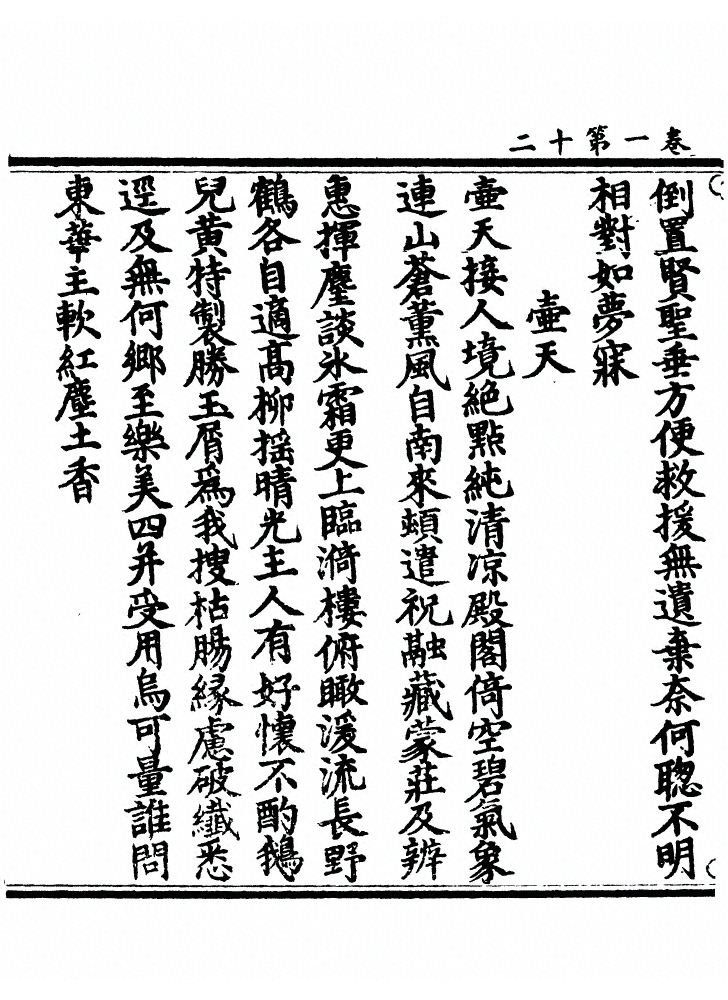 卷一第十二
倒置賢聖垂方便救援無遺棄奈何聦不明
相對如夢寐
壷天
壷天接人境絶點純清凉殿閣倚空碧氣象
連山蒼薰風自南來頻遣祝融藏蒙莊及辨
惠揮麈談氷霜更上臨漪樓俯瞰湲流長野
鶴各自適髙柳揺晴光主人有好懷不酌鵝
兒黄特製勝玉屑爲我搜枯腸縁慮破纎悉
逕及無何鄉至樂美四并受用烏可量誰問
東華主軟紅塵土香